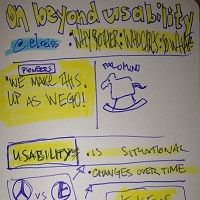 on beyond usability
@elreiss
PIONEERS
"WE MAKE THIS
UP AS WE GO!"
PALOMINO
USABILITY
IS SITUATIONAL
CHANGES OVER TIME
VS